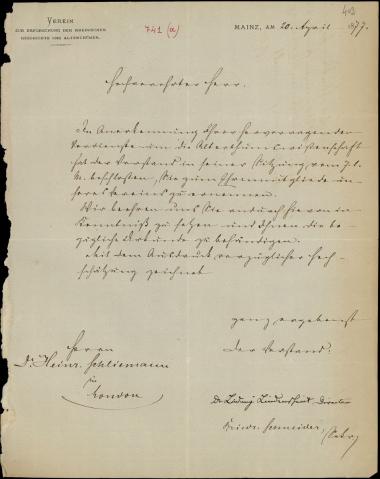 VEREIN
ZUR ERFORSCHUNG DER RHEINISCHEN
GESCHICHTE UND ALTERTHÜMER.
741 (a)
MAINZ, AM 20. April 1877.
Hochverehrter Herr.
In Anerkennung Ihrer hervorragenden
Verdienste um die Alterthumswissenschaft
hat der Vorstand in seiner Sitzung vom 7. l.
M. beschlossen, Sie zum Ehrenmitgliede un-
seres Vereins zu ernennen.
Wir beehren uns Sie andurch hievon in
Kenntniß zu setzen und Ihnen die be-
zügliche Urkunde zu behändigen.
Mit dem Ausdruck vorzüglicher Hoch-
schätzung zeichnet
ganz ergebenst
der Vorstand.
Herrn
Dr. Heinr. Schliemann
in
London
Dr. Ludwig Lindenschmit Director
Friedr. Schneider, Secr.